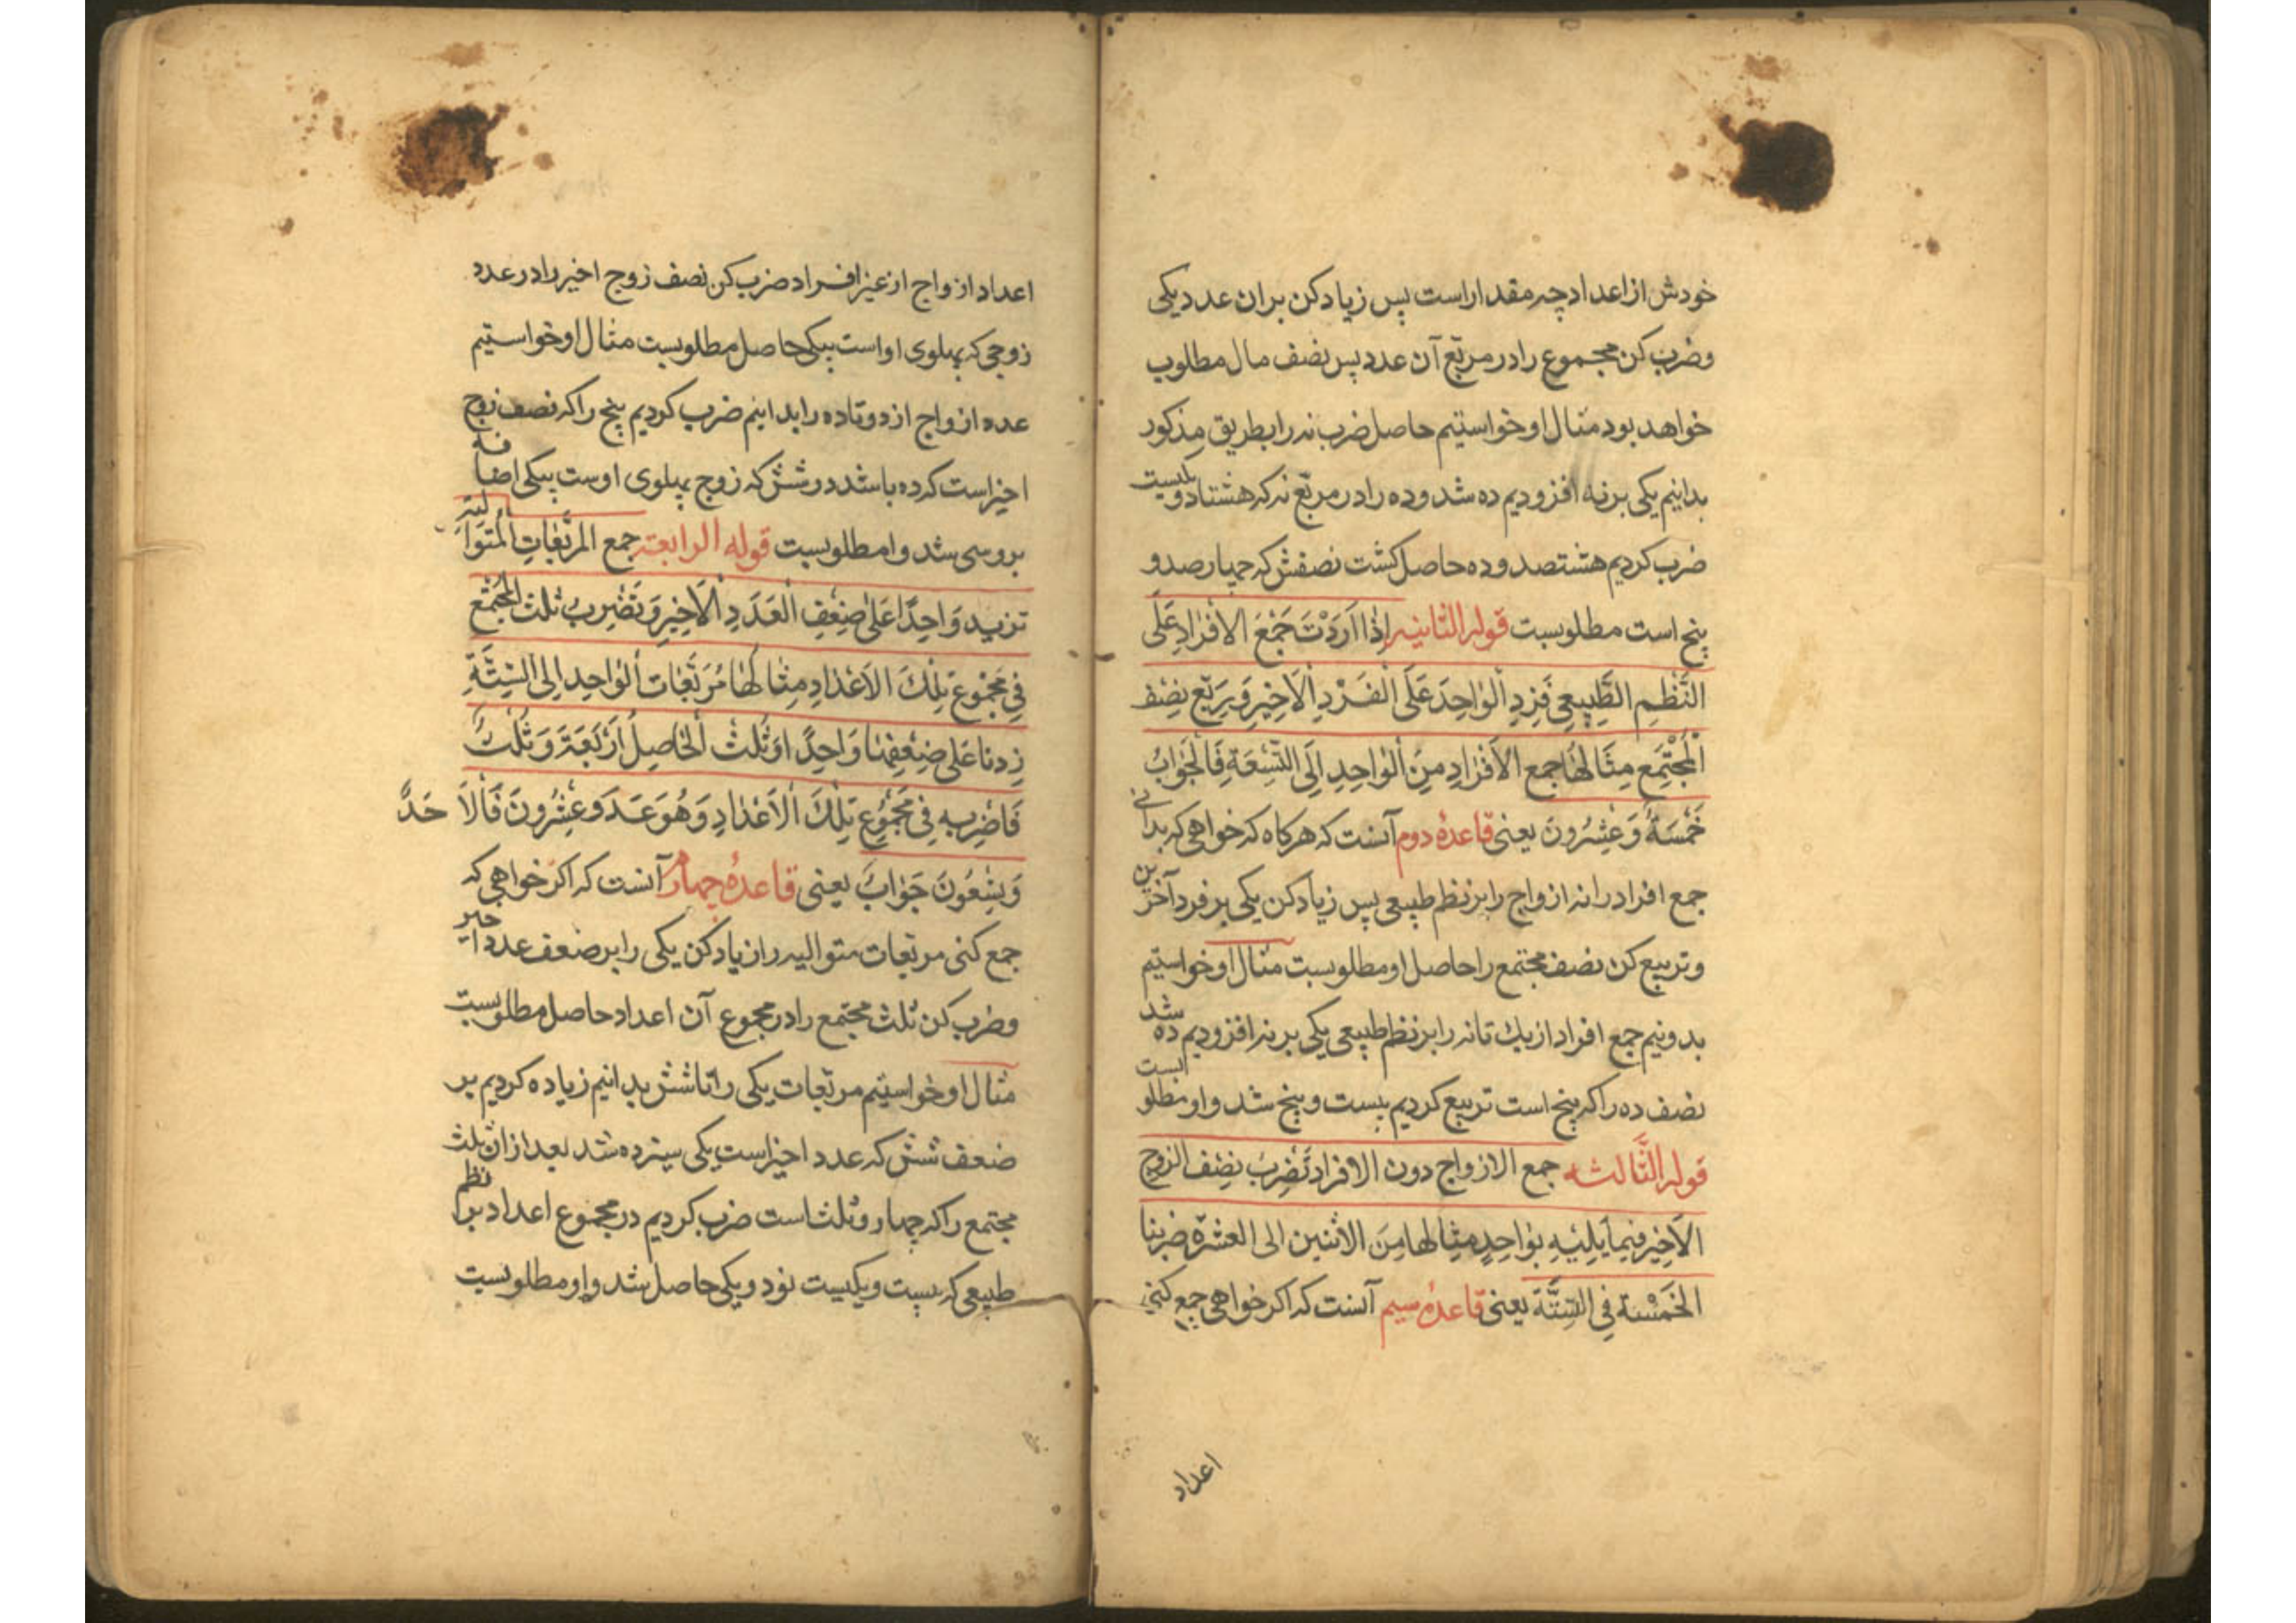 خودش از اعداد چه مقدار است پس زیاد کن بران عدد یکی
وضرب کن مجموع را در مربّع آن عدد پس نصف مال مطلوب
خواهد بود مثال او خواستیم حاصل ضرب نه را بطریق مذکور
بدانیم یکی بر نه افزودیم ده شد وده را در مربّع نه که هشتاد ویکیست
ضرب کردیم هشتصد وده حاصل کشت نصفش که چهارصد و
پنج است مطلوبست قوله الثانیه اِذَا اَرَدْتَ جَمْعَ الاَفْرَادِ عَلَی
النَّظْمِ الطَّبِیعِی فَزِدِ الْوَاحِدَ عَلَی الْفَرْدِ الْاَخِیرِ وَرَبِّع نِصْفَ
الْمُجْتَمِع مِثَالُهَا جمع الاَفْرَادِ مِنَ الْوَاحِدِ اِلَی التِّسْعَةِ فَالْجَوَابُ
خَمْسَةٌ وَعِشْرُونَ یعنی قاعدهٔ دوم آنست که هرکاه که خواهی که بدانی
جمع افراد را نه ازواج را بر نظم طبیعی پس زیاد کن یکی بر فرد آخرین
وتربیع کن نصف مجتمع را حاصل او مطلوبست مثال او خواستیم
بدونیم جمع افراد از یك تا نه را بر نظم طبیعی یکی بر نه افزودیم ده شد
نصف ده را که پنج است تربیع کردیم بیست وپنج شد واو مطلوبست
قوله الثَّالثه جمع الازواج دون الافراد تَضْرِبُ نِصْف الزوج
الْاَخِیر فِیمَا یَلِیْهِ بِوَاحِدٍ مثِالها مِنَ الاثنین الی العشرة ضربنا
الخَمْسَة فِی السِّتَّة یعنی قاعدهٔ سیم آنست که اکر خواهی جمع کنی
اعداد
اعداد ازواج از غیر افراد ضرب کن نصف زوج اخیر را در عدد
زوجی که پهلوی او است بیکی حاصل مطلوبست مثال او خواستیم
عدد ازواج از دو تا ده را بدانیم ضرب کردیم پنج را که نصف زوج
اخیر است که ده باشد در شش که زوج پهلوی اوست بیکی اضافه
برو سی شد واو مطلوبست قوله الرابعة جمع المربَّعَاتِ الْمُتَوَالِیَة
تزید وَاحِدًا عَلَی ضِعْفِ الْعَدَدِ الْاَخِیرِ وَتَضْرِبُ ثلث الْمُجْتَمَع
فِی مَجْمُوعِ تِلْكَ الاَعْدَادِ مِثَالُهَا مُرَبَّعَات الْوَاحِد اِلَی السِّتَّةِ
زِدنا عَلَی ضِعْفِهَا وَاحِدًا وَثُلُثُ الْحَاصِلِ اَرْبَعَة وَثُلُثٌ
فَاضْرِبه فِی مَجْمُوعِ تِلْكَ الْاَعْدَادِ وَهُوَ عَدَ وعِشْرُونَ فَالَا حَدّ
وَتِسْعُونَ جَوَابٌ یعنی قاعدهٔ چهارم آنست که اکر خواهی که
جمع کنی مربّعات متوالیه را زیاد کن یکی را بر ضعف عدد اخیر
وضرب کن ثلث مجتمع را در مجموع آن اعداد حاصل مطلوبست
مثال او خواستیم مربّعات یکی را تا شش بدانیم زیاده کردیم بر
ضعف شش که عدد اخیر است یکی سیزده شد بعد از ان ثلث
مجتمع را که چهار وثلث است ضرب کردیم در مجموع اعداد بر نظم
طبیعی که بیست ویکیست نود ویکی حاصل شد واو مطلوبست